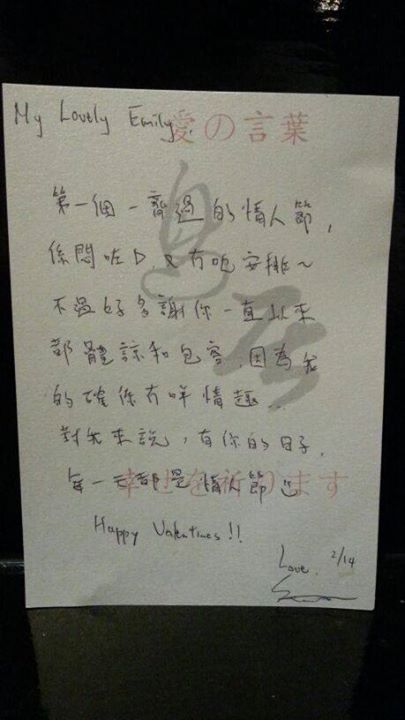 My Lovely Emily,
愛の言葉
第一個一齊過的情人節,
係悶咗D 又冇咜安排~
不過好多謝你一直以來
都體諒和包容,因為我
的確係冇咩情趣..
對我來說,有你的日子,
每一天都是情人節
幸せを祈ります
Happy Valentines!!
Love. 2/14